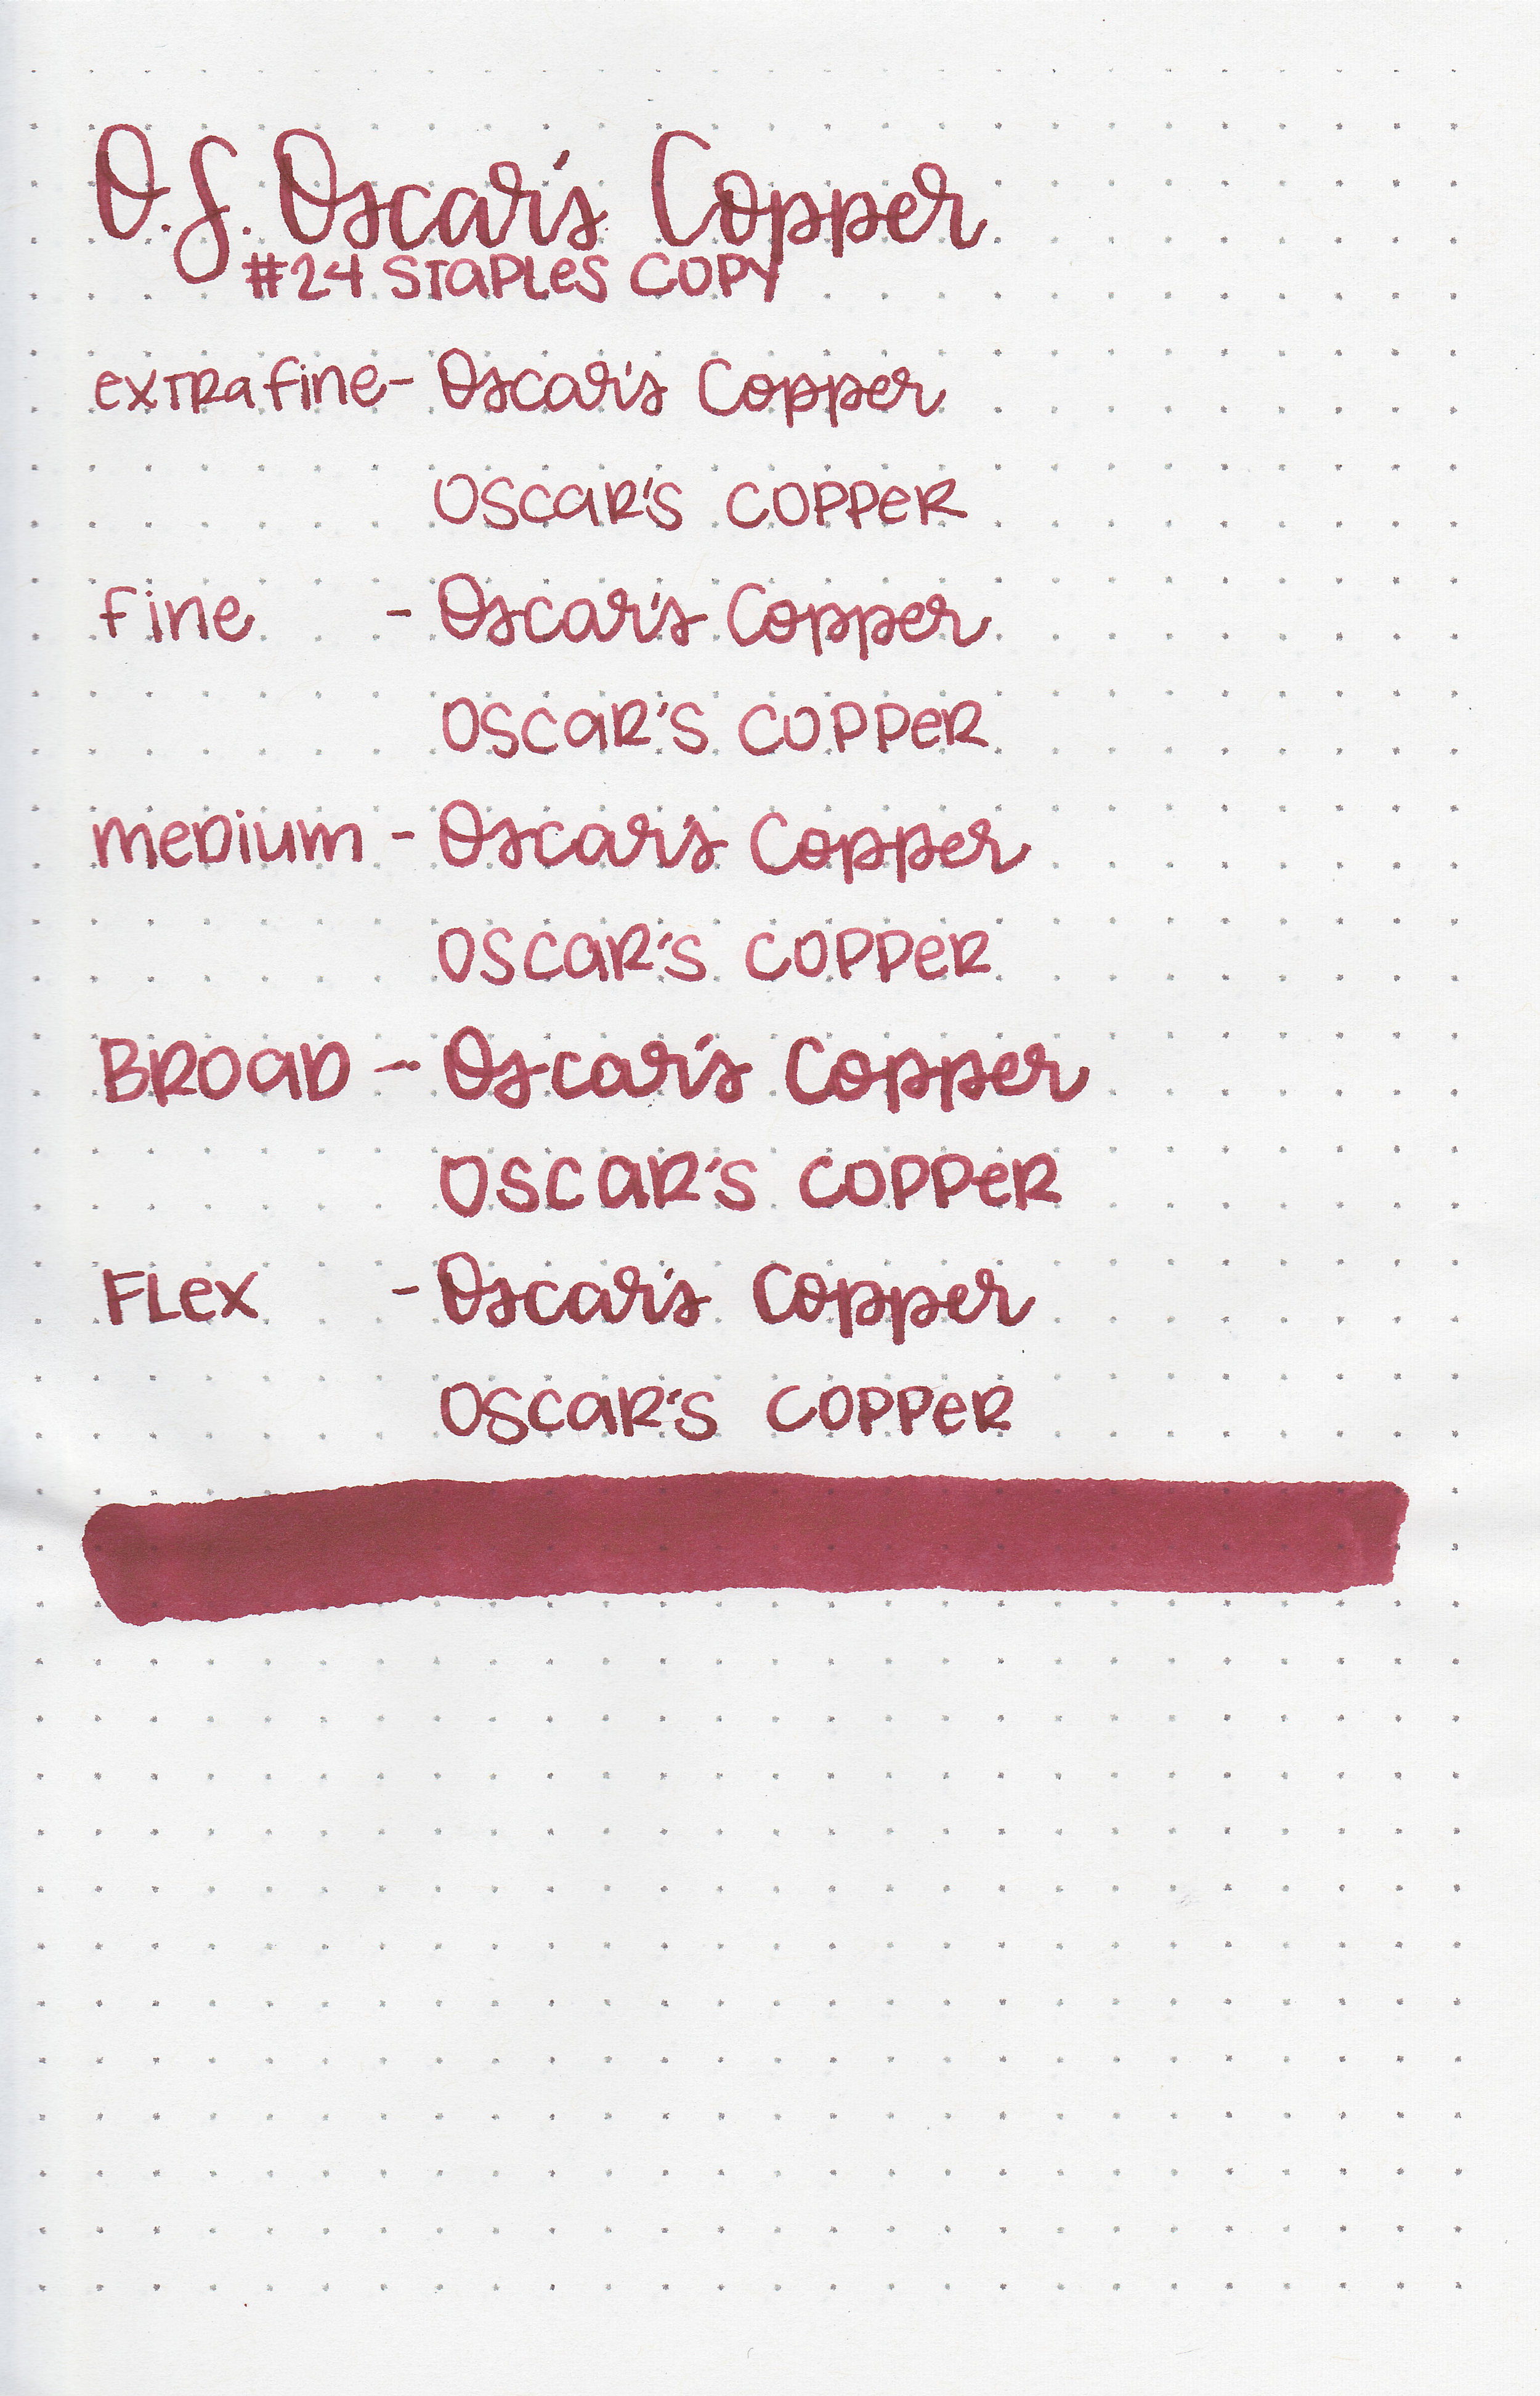 O.S. Oscar's Copper
#24 STaPLes COPY
exTRa fine - Oscar's Copper
OSCaR'S COPPeR
fine - Oscar's Copper
OSCaR'S COPPeR
meDium - Oscar's Copper
OSCaR'S COPPeR
BROaD - Oscar's Copper
OSCaR'S COPPeR
FLex - Oscar's Copper
OSCaR'S COPPeR